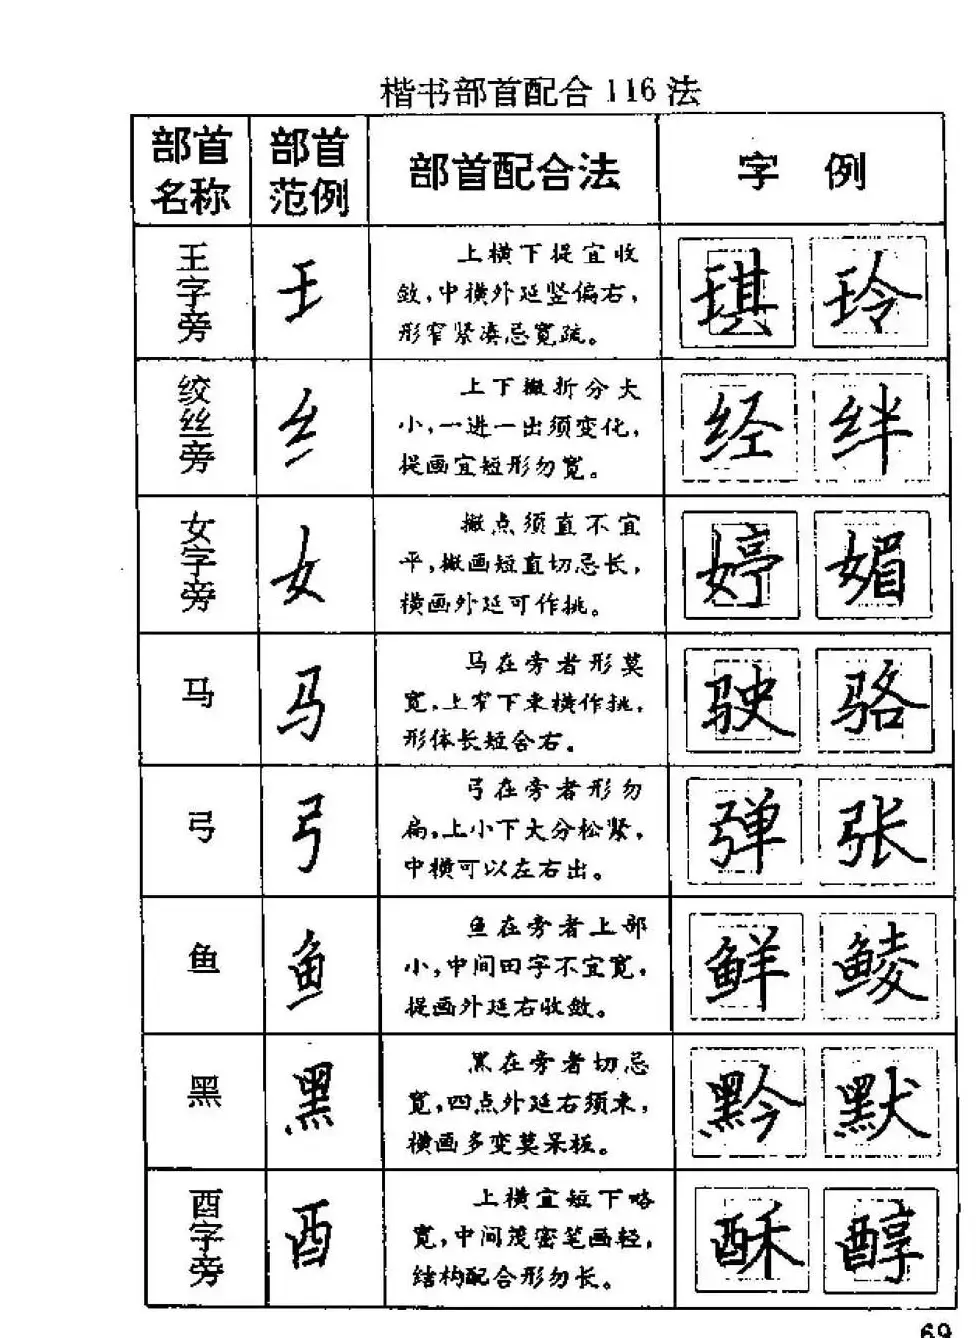 楷书部首配合116法
部首名称 部首范例 部首配合法 字 例
王字旁 王 上横下提宜收 琪 玲
敛,中横外延竖偏右,
形窄紧凑忌宽疏。
绞丝旁 纟 上下撇折分大 经 绊
小,一进一出须变化,
提画宜短形勿宽。
女字旁 女 撇点须直不宜 婷 媚
平,撇画短直切忌长,
横画外延可作挑。
马 马 马在旁者形莫 驶 骆
宽,上窄下来横作挑,
形体长短合右。
弓 弓 弓在旁者形勿 弹 张
扁,上小下大分松紧,
中横可以左右出。
鱼 鱼 鱼在旁者上部 鲜 鲮
小,中间田字不宜宽,
提画外延右收敛。
黑 黑 黑在旁者切忌 黔 默
宽,四点外延右须来,
横画多变莫呆板。
酉字旁 酉 上横宜短下略 酥 醇
宽,中间茂密笔画轻,
结构配合形勿长。
69